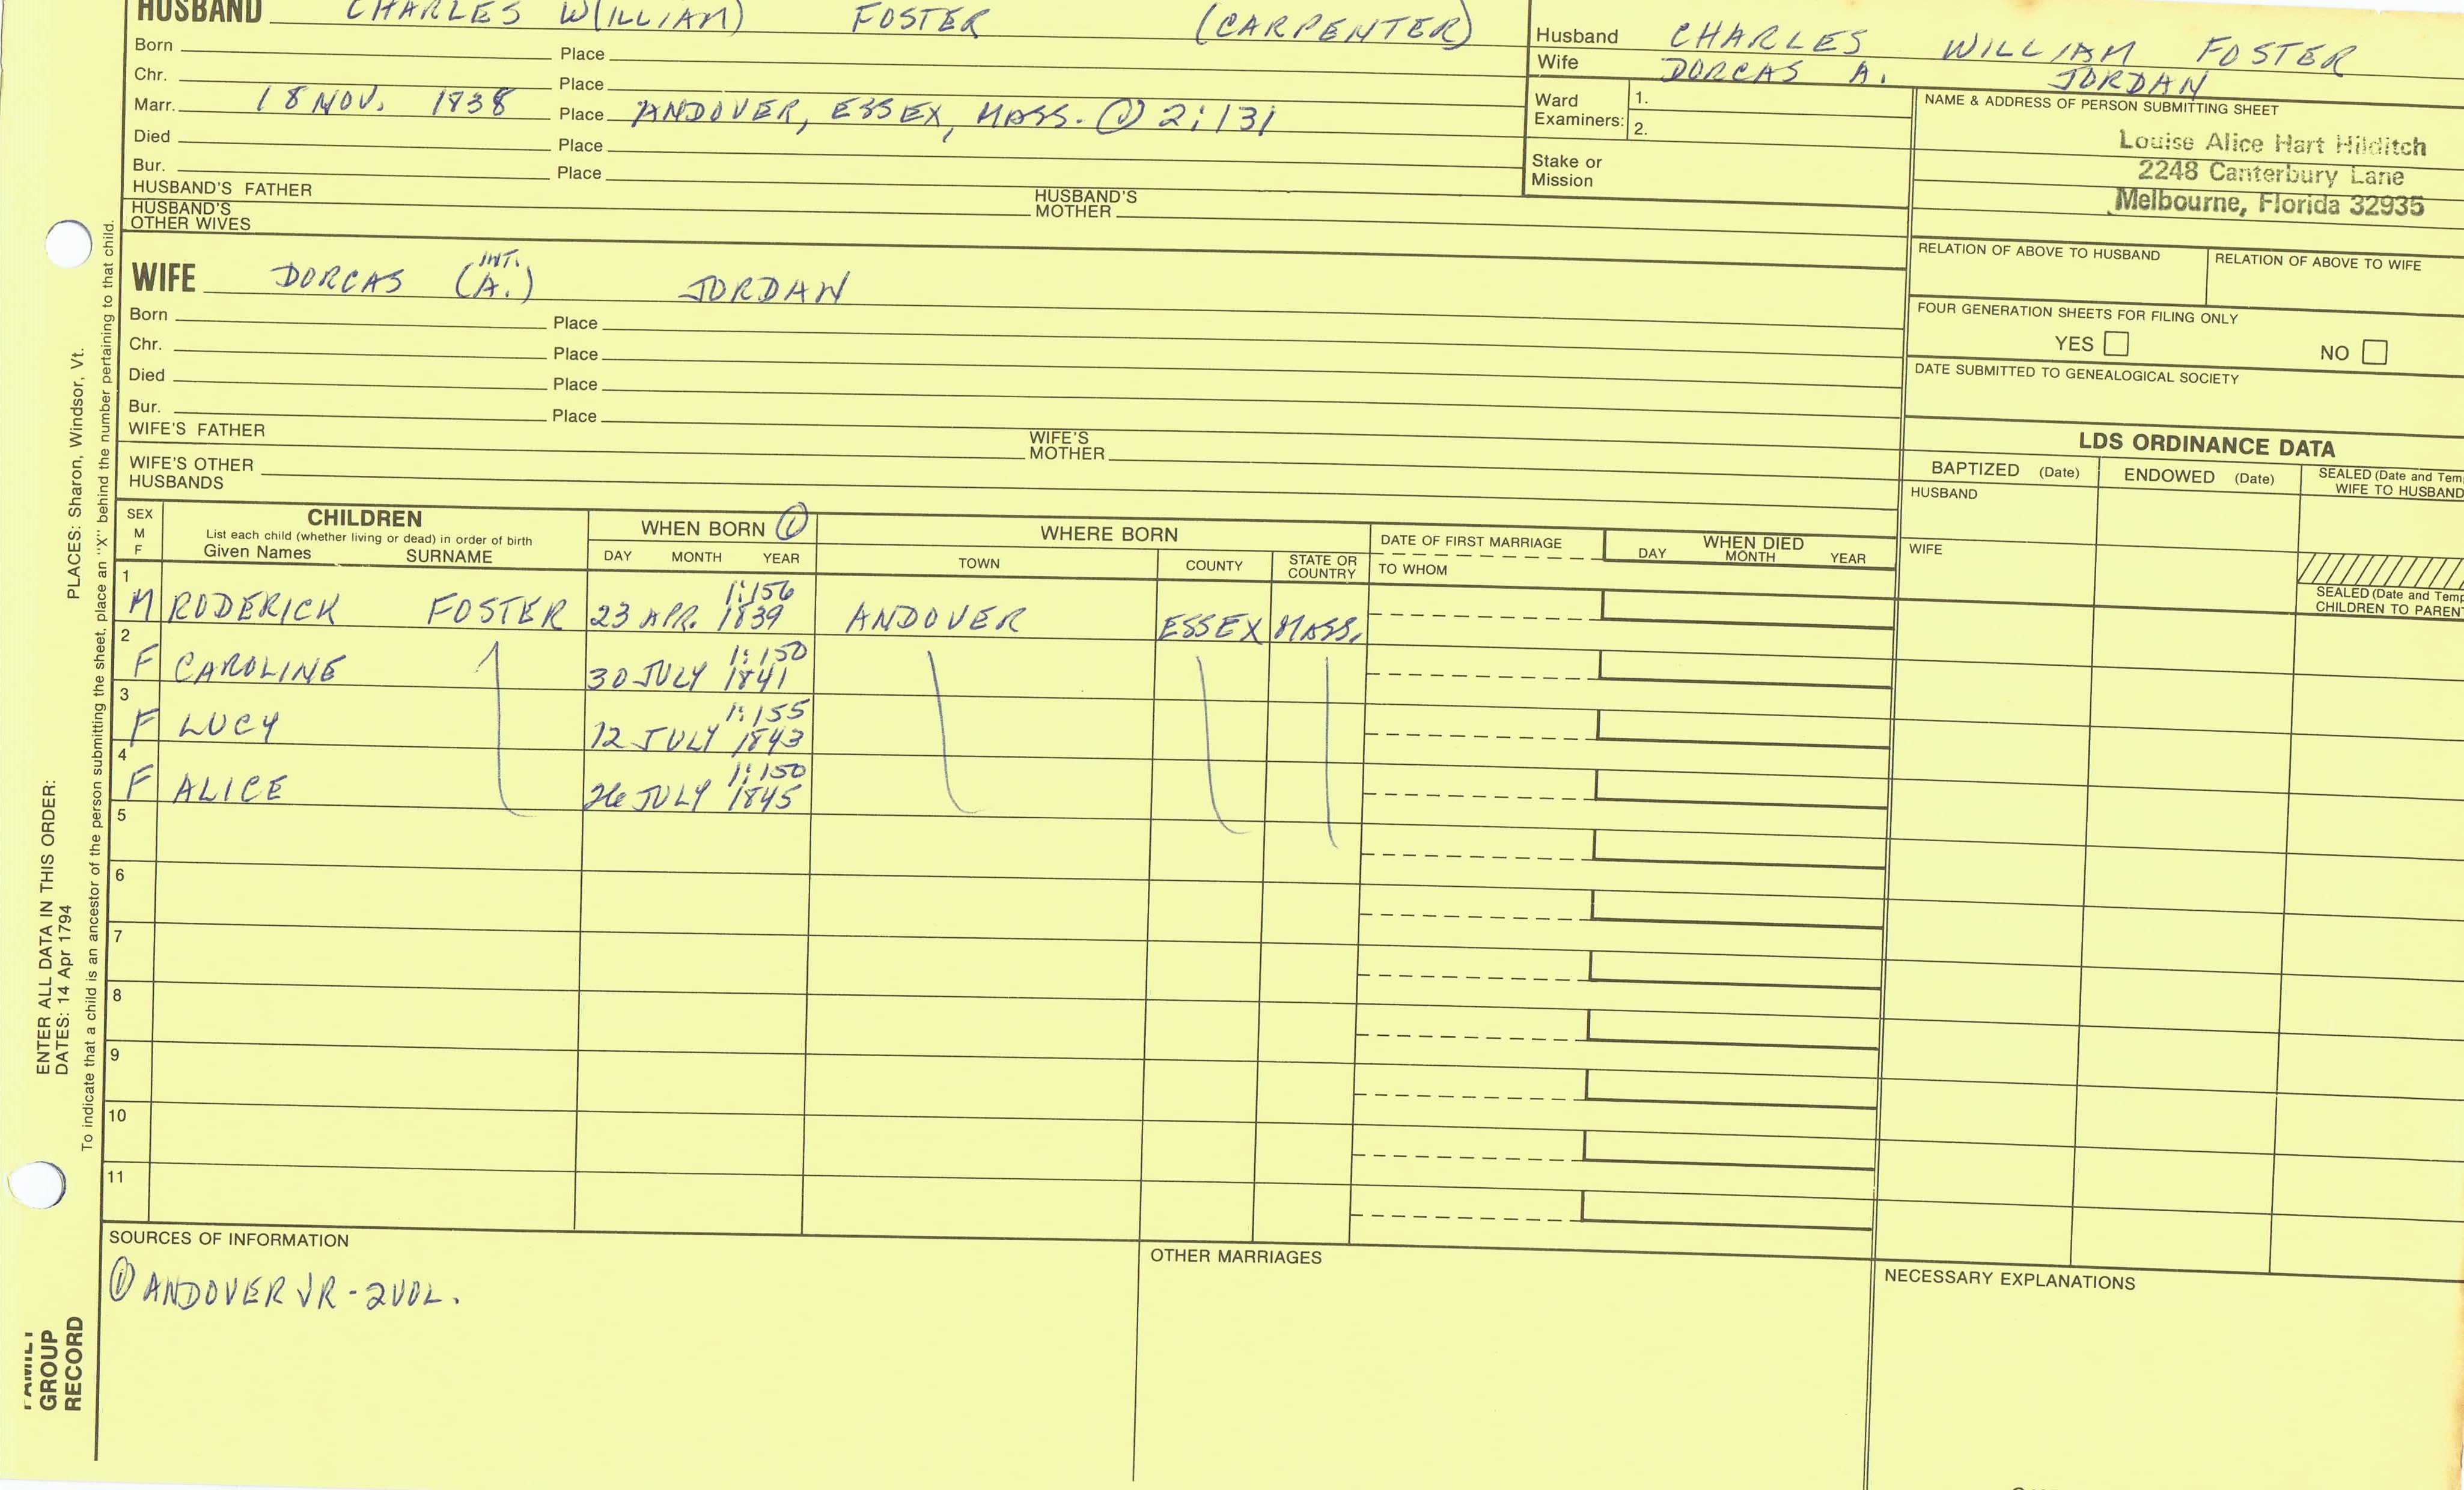 HUSBAND CHARLES W(ILLIAM) FOSTER (CARPENTER)
Born Place
Chr. Place
Marr. 18 NOV. 1838 Place ANDOVER, ESSEX, MASS. ① 2:131
Died Place
Bur. Place
HUSBAND'S FATHER HUSBAND'S MOTHER
HUSBAND'S OTHER WIVES
Husband CHARLES WILLIAM FOSTER
Wife DORCAS A. JORDAN
Ward Examiners: 1.
2.
Stake or Mission
NAME & ADDRESS OF PERSON SUBMITTING SHEET
Louise Alice Hart Hilditch
2248 Canterbury Lane
Melbourne, Florida 32935
RELATION OF ABOVE TO HUSBAND RELATION OF ABOVE TO WIFE
FOUR GENERATION SHEETS FOR FILING ONLY
YES NO
DATE SUBMITTED TO GENEALOGICAL SOCIETY
INT.
WIFE DORCAS (A.) JORDAN
Born Place
Chr. Place
Died Place
Bur. Place
WIFE'S FATHER WIFE'S MOTHER
WIFE'S OTHER HUSBANDS
LDS ORDINANCE DATA
BAPTIZED (Date) ENDOWED (Date) SEALED (Date and Tem
WIFE TO HUSBAND
HUSBAND
WIFE
SEALED (Date and Temp
CHILDREN TO PAREN
SEX M F
CHILDREN
List each child (whether living or dead) in order of birth
Given Names SURNAME
WHEN BORN ①
DAY MONTH YEAR
WHERE BORN
TOWN COUNTY STATE OR COUNTRY
DATE OF FIRST MARRIAGE
TO WHOM
WHEN DIED
DAY MONTH YEAR
1 1:156
M RODERICK FOSTER 23 APR. 1839 ANDOVER ESSEX MASS.
2 1:150
F CAROLINE 30 JULY 1841
3 1:155
F LUCY 12 JULY 1843
4 1:150
F ALICE 26 JULY 1845
5
6
7
8
9
10
11
SOURCES OF INFORMATION
① ANDOVER VR - 2 VOL.
OTHER MARRIAGES
NECESSARY EXPLANATIONS
ENTER ALL DATA IN THIS ORDER:
DATES: 14 Apr 1794 PLACES: Sharon, Windsor, Vt.
To indicate that a child is an ancestor of the person submitting the sheet, place an "X" behind the number pertaining to that child.
FAMILY
GROUP
RECORD